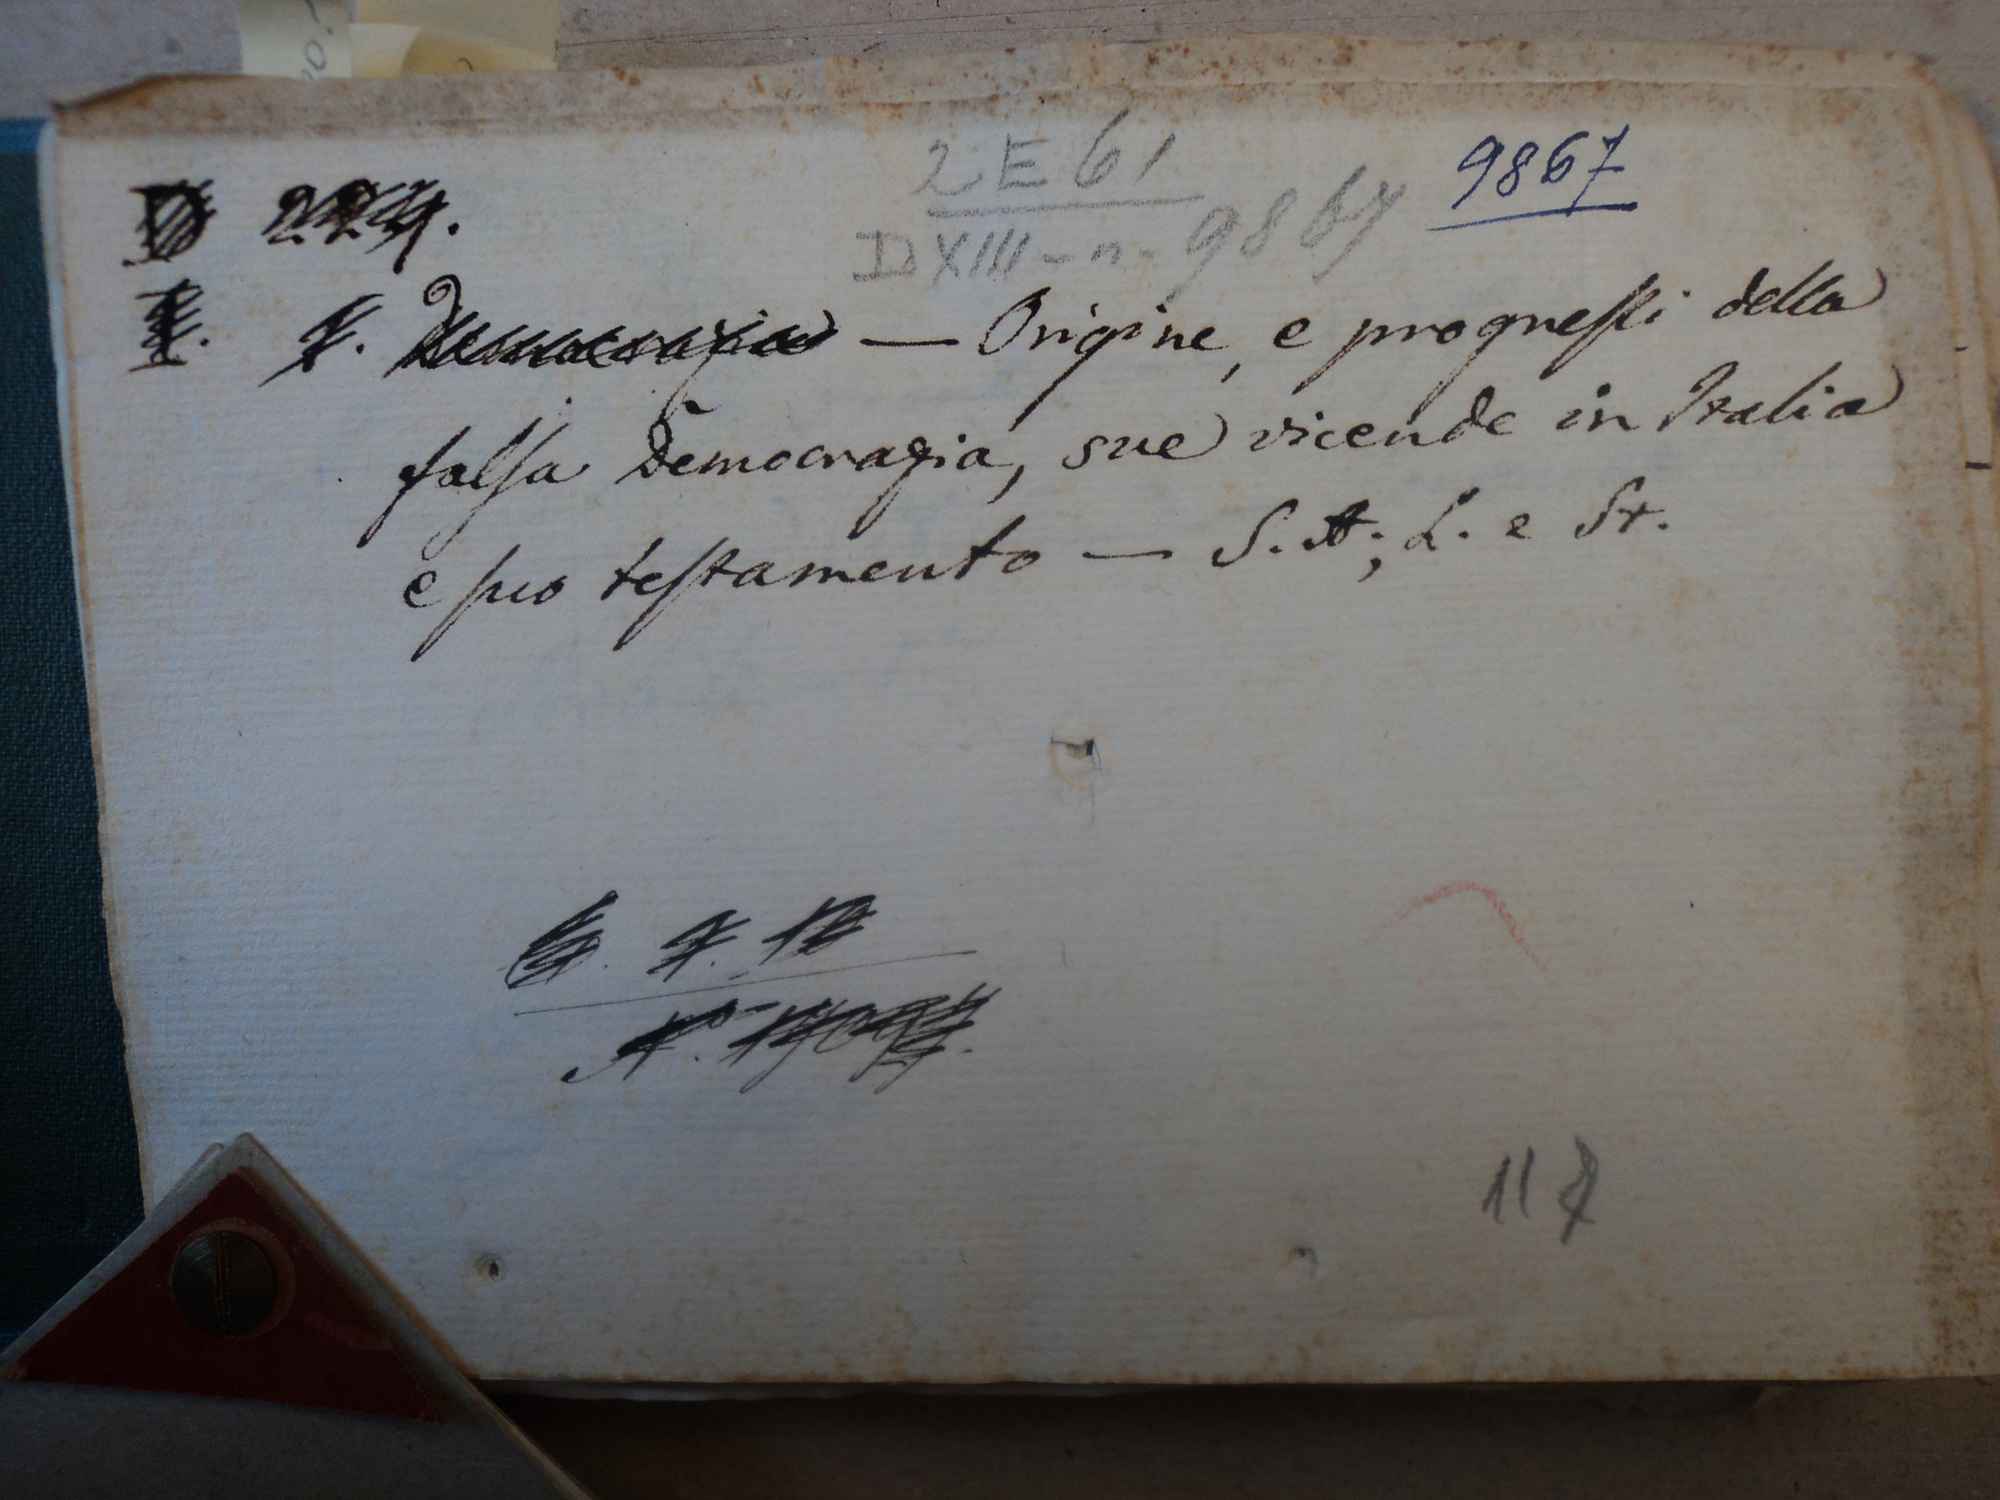 2 E 61
D XIII - n. 9867
9867
D 224.
7. Democrazia — Origine, e progressi della
falsa Democrazia, sue vicende in Italia
e suo testamento — S. A; L. e St.
7. 12
11